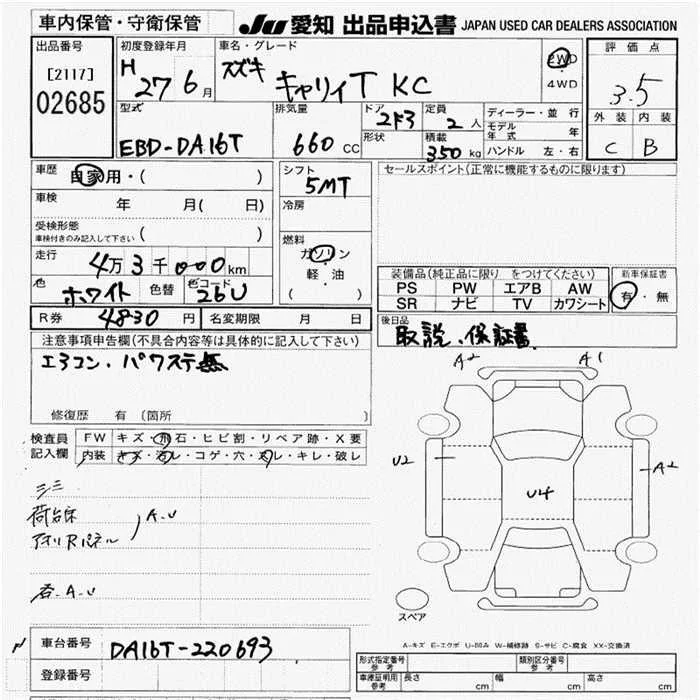 車内保管・守衛保管
Ju 愛知 出品申込書 JAPAN USED CAR DEALERS ASSOCIATION
出品番号
[2117]
02685
初度登録年月
H 27 年 6 月
車名・グレード
スズキ キャリィT KC
2WD
・
4WD
評価点
3.5
外装 内装
C B
型式
EBD-DA16T
排気量
660 cc
ドア
2ドア
形状
定員
2 人
積載
350 kg
ディーラー・並行
モデル年式 年
ハンドル 左・右
車歴
自家用・( )
車検
年 月( 日)
受検形態
車検付きのみ記入して下さい ( )
走行
4万3千000km
色
ホワイト
色替
色コード
26U
シフト
5MT
冷房
燃料
ガソリン
・
軽・油
( )
セールスポイント(正常に機能するものに限ります)
装備品(純正品に限り をつけてください)
PS PW エアB AW
SR ナビ TV カワシート
新車保証書
有・無
R券 4830 円
名変期限 月 日
後日品
取説、保証書
注意事項申告欄(不具合内容等は具体的に記入して下さい)
エアコン・パワステ無
修復歴 有 (箇所 )
検査員
記入欄
FW キズ・飛石・ヒビ割・リペア跡・X要
内装 キズ・汚レ・コゲ・穴・スレ・キレ・破レ
荷台床
アオリRパネル
A.U
A.U
A2
A1
U2
U4
A2
スペア
A-キズ E-エクボ U-凹み W-補修跡 S-サビ C-腐食 XX-交換済
車台番号
DA16T-220693
登録番号
形式指定番号
参考
類別区分番号
参考
車庫証明用
参考
長さ cm 幅 cm 高さ cm